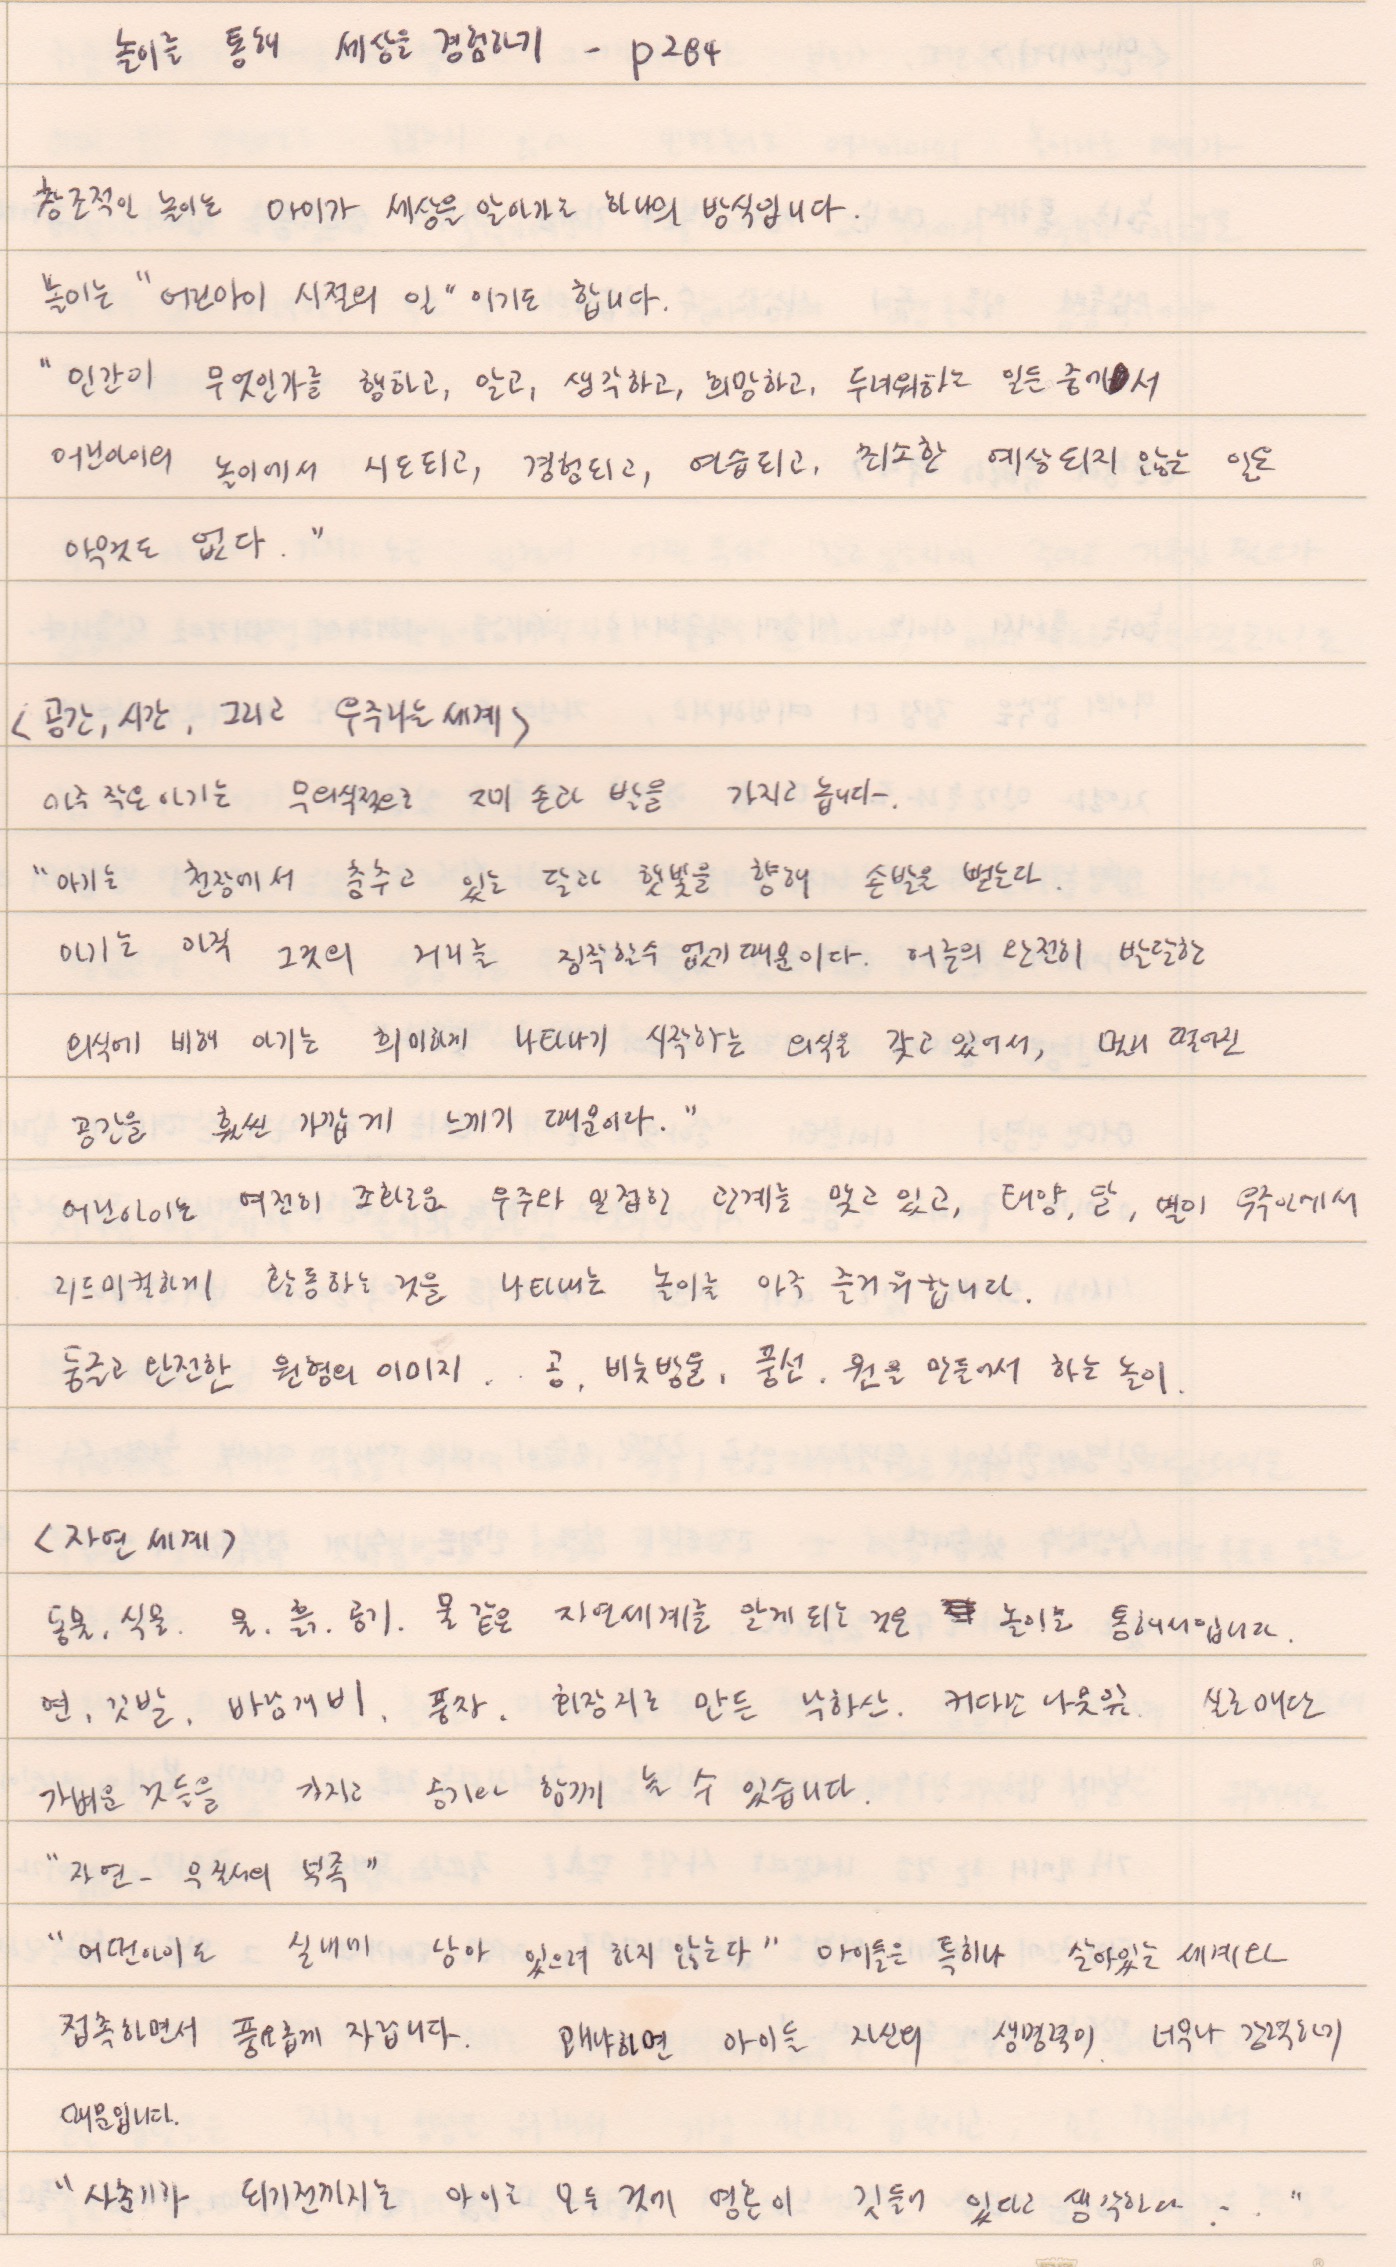 놀이를 통해 세상을 경험하기 - p284
창조적인 놀이는 아이가 세상을 알아가는 하나의 방식입니다.
놀이는 "어린아이 시절의 일" 이기도 합니다.
"인간이 무엇인가를 행하고, 알고, 생각하고, 희망하고, 두려워하는 일들 중에서
어린아이의 놀이에서 시도되고, 경험되고, 연습되고, 최소한 예상되지 않는 일은
아무것도 없다."
<공간, 시간, 그리고 우주라는 세계>
아주 작은 아기는 무의식적으로 자기 손과 발을 가지고 놉니다.
"아기는 천장에서 춤추고 있는 달과 햇빛을 향해 손발을 뻗는다.
아기는 아직 그것의 거리를 짐작할수 없기 때문이다. 어른의 완전히 발달한
의식에 비해 아기는 희미하게 나타나기 시작하는 의식을 갖고 있어서, 멀리 떨어진
공간을 훨씬 가깝게 느끼기 때문이다."
어린아이는 여전히 조화로운 우주와 밀접한 관계를 맺고 있고, 태양, 달, 별이 우주안에서
리드미컬하게 활동하는 것을 나타내는 놀이를 아주 즐거워합니다.
둥글고 완전한 원형의 이미지.. 공, 비눗방울, 풍선, 원을 만들어서 하는 놀이.
<자연 세계>
동물, 식물. 물. 흙. 공기. 불 같은 자연세계를 알게 되는 것은 놀이를 통해서입니다.
연, 깃발, 바람개비, 풍차, 화장지로 만든 낙하산. 커다란 나뭇잎. 실로 매단
가벼운 것들을 가지고 공기와 함께 놀 수 있습니다.
"자연 - 무질서의 부족"
"어떤아이도 실내에 남아 있으려 하지 않는다" 아이들은 특히나 살아있는 세계와
접촉하면서 풍요롭게 자랍니다. 왜냐하면 아이들 자신의 생명력이 너무나 강력하기
때문입니다.
"사춘기가 되기전까지는 아이는 모든 것에 영혼이 깃들어 있다고 생각한다..."